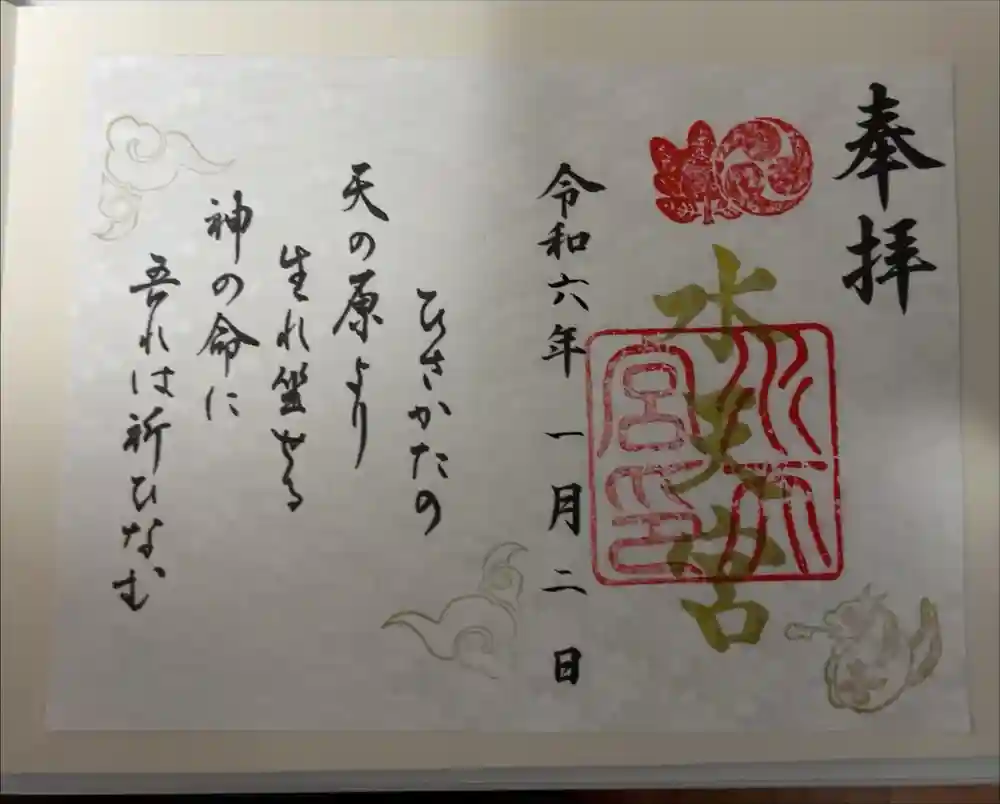 奉拝
水天宮
水天宮印
令和六年一月二日
ひさかたの
天の原より
生れ坐せる
神の命に
吾れは祈ひなむ